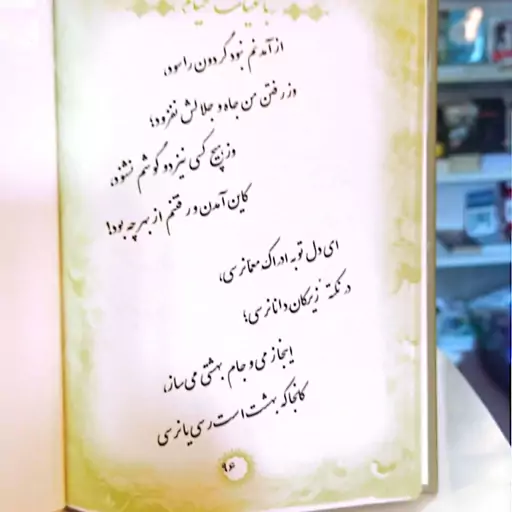 رباعیات خیام
از آمدنم نبود گردون را سود،
وز رفتن من جاه و جلالش نفزود؛
وز هیچ کسی نیز دو گوشم نشنود،
کاین آمدن و رفتنم از بهر چه بود!
ای دل تو به ادراک معما نرسی،
در نکتهٔ زیرکان دانا نرسی؛
اینجا ز می و جام بهشتی می‌ساز،
کانجا که بهشت است رسی یا نرسی